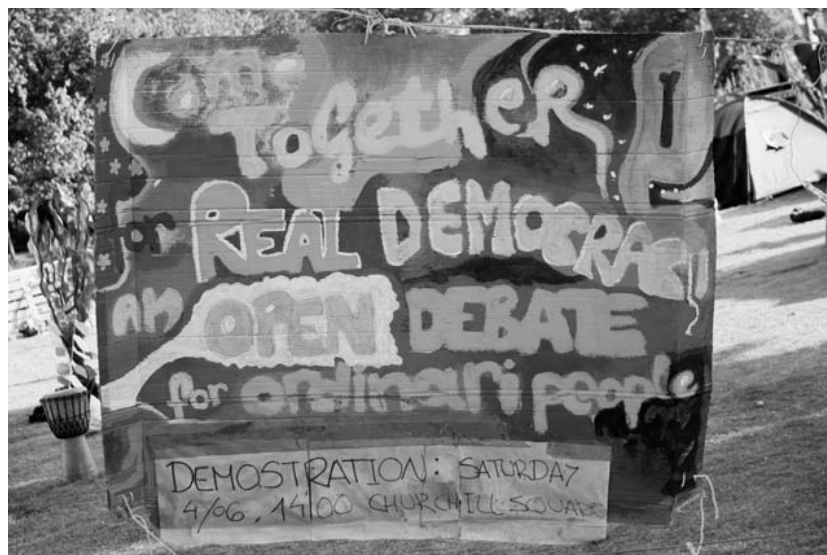 Come
TogetheR
for REAL DEMOCRACY
AN OPEN DEBATE
for ordinari people
DEMOSTRATION: SATURDAY
4/06, 14:00 CHURCHILL SQUARE